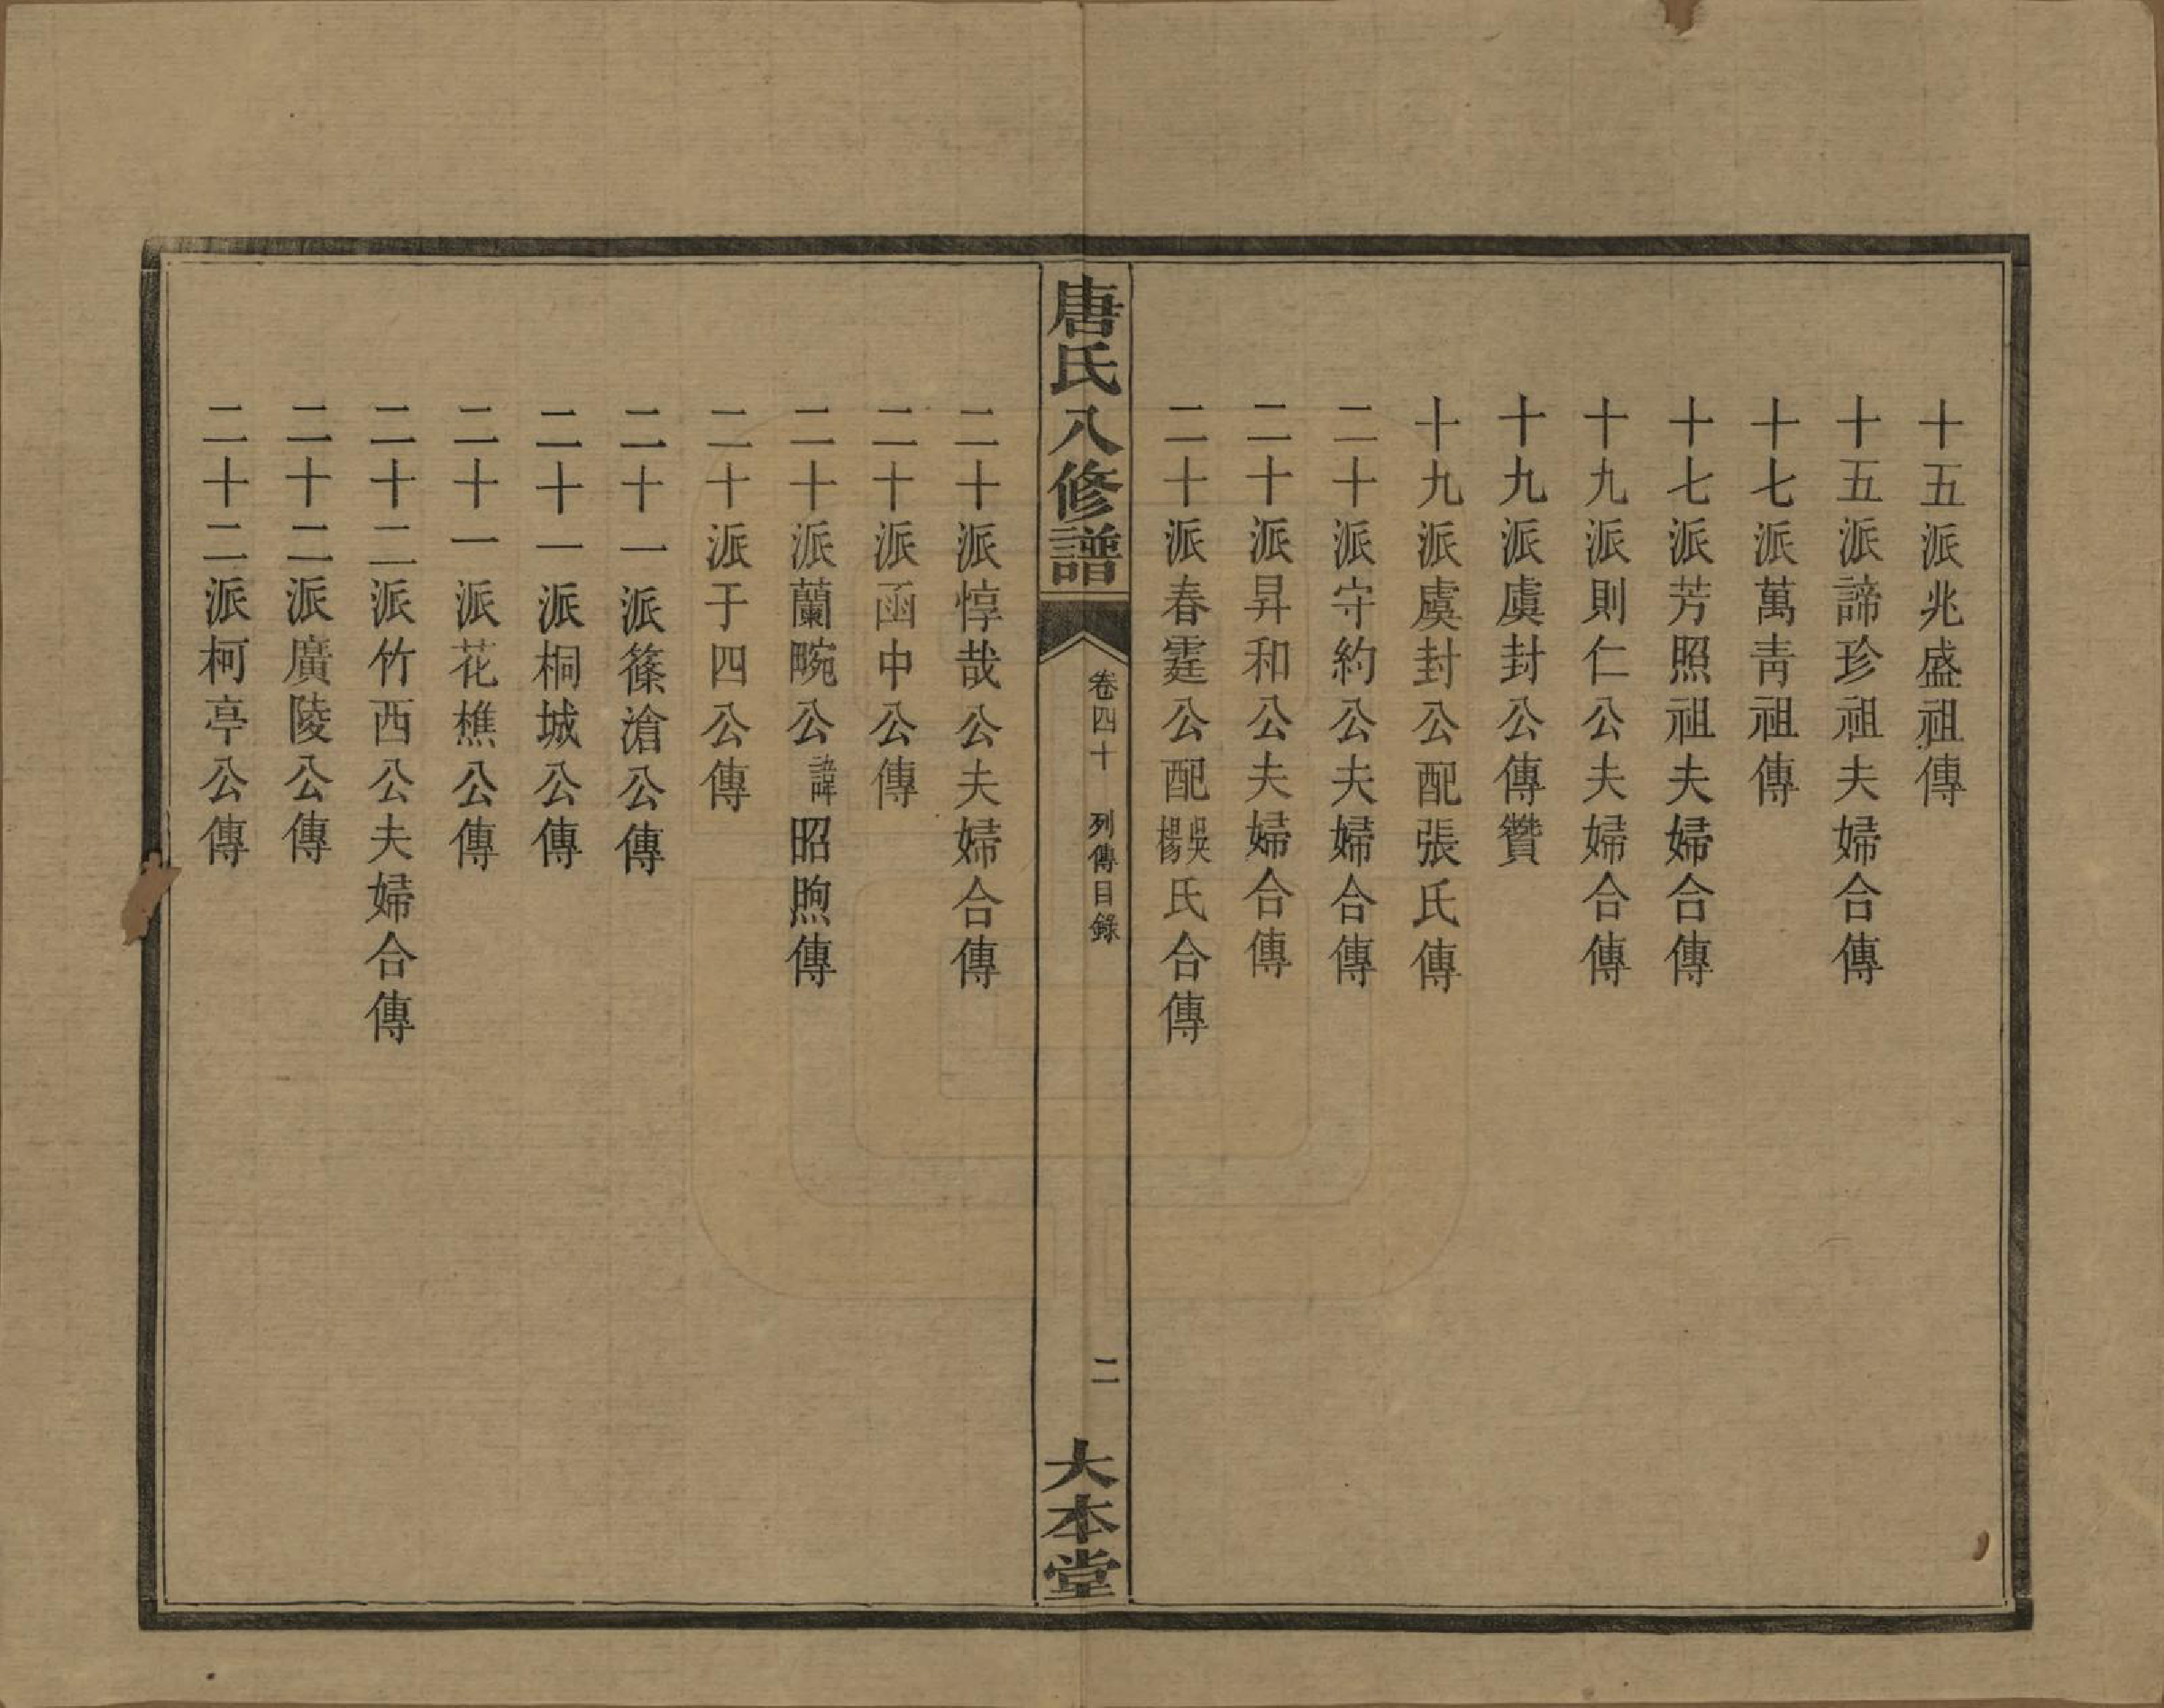 十五派兆盛祖傳
十五派諦珍祖夫婦合傳
十七派萬青祖傳
十七派芳照祖夫婦合傳
十九派則仁公夫婦合傳
十九派虞封公傳贊
十九派虞封公配張氏傳
二十派守約公夫婦合傳
二十派昇和公夫婦合傳
二十派春霆公配吳楊氏合傳
唐氏八修譜
卷四十 列傳目錄
二
大本堂
二十派惇哉公夫婦合傳
二十派函中公傳
二十派蘭畹公諱昭煦傳
二十派于四公傳
二十一派篠滄公傳
二十一派桐城公傳
二十一派花樵公傳
二十二派竹西公夫婦合傳
二十二派廣陵公傳
二十二派柯亭公傳